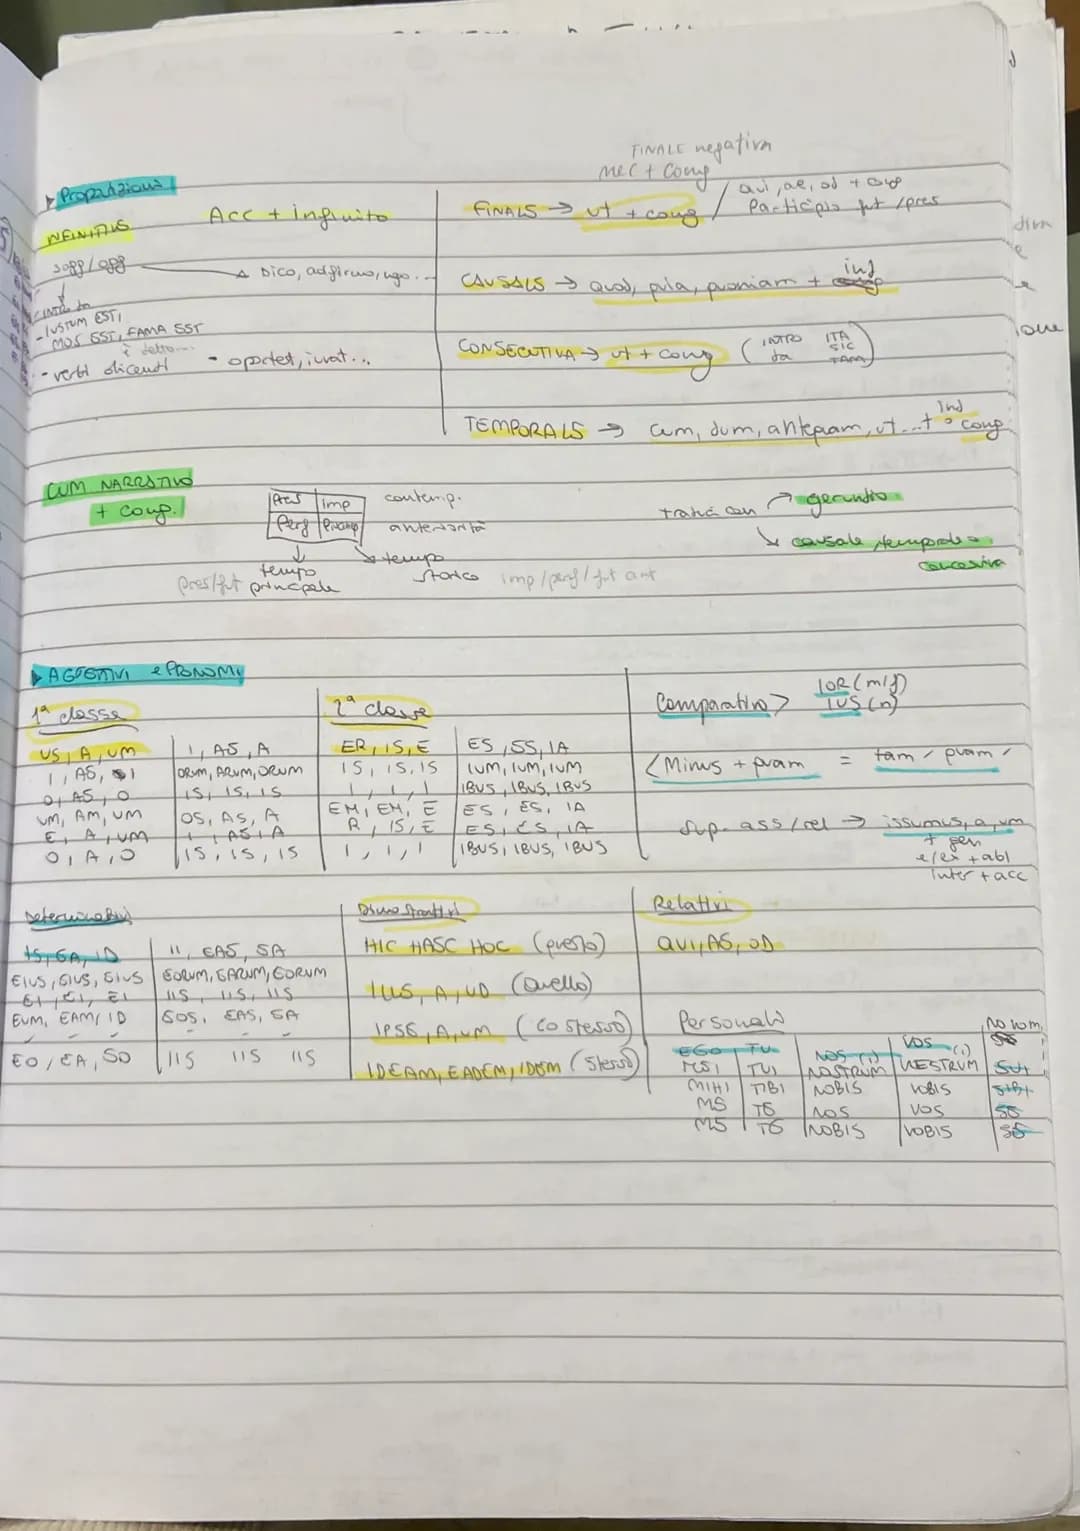 FINALE negativa
nec + Cong
▸ Proposizioni
INFINITIVE
Acc + infinito
sogg/ogg
Dico, adfirmo, ngo...
INTRO da
- IUSTUM EST,
MOS EST, FAMA EST
è detto...
- verbi dicendi
- oportet, iuvat...
FINALE → ut + cong / qui, ae, od + cong
Participio fut / pres
CAUSALE → quod, quia, quoniam + ind
CONSECUTIVA → ut + cong (INTRO da ITA SIC TAM)
TEMPORALE → cum, dum, antequam, ut...+ ind o cong
CUM NARRATIVO
+ cong.
Pres | imp contemp.
Perf | Piucomp anteriorità
tempo principale
pres/fut
tempo storico
imp/perf/fut ant
traduci con → gerundio
→ causale, temporale o
concessiva
▸ AGGETTIVI e PRONOMI
1ª classe
US, A, UM | I, AE, A
I, AE, I | ORUM, ARUM, ORUM
O, AE, O | IS, IS, IS
UM, AM, UM | OS, AS, A
E, A, UM | I, AE, A
O, A, O | IS, IS, IS
2ª classe
ER, IS, E | ES, ES, IA
IS, IS, IS | IUM, IUM, IUM
I, I, I | IBUS, IBUS, IBUS
EM, EM, E | ES, ES, IA
R, IS, E | ES, ES, IA
I, I, I | IBUS, IBUS, IBUS
Comparativo > IOR (m/f)
IUS (n)
< Minus + quam = tam / quam
Sup. ass/rel → issumus, a, um
+ gen
e/ex + abl
inter + acc
Determinativi
IS, EA, ID | II, EAE, EA
EIUS, EIUS, EIUS | EORUM, EARUM, EORUM
EI, EI, EI | IIS, IIS, IIS
EUM, EAM, ID | EOS, EAS, EA
- - - | - - -
EO, EA, EO | IIS IIS IIS
Dimostrativi
HIC HAEC HOC (questo)
ILLE, A, UD (Quello)
IPSE, A, UM (Lo stesso)
IDEAM, EADEM, IDEM (Stesso)
Relativi
QUI, AE, OD
Personali
No nom.
EGO | TU | NOS (i) | VOS (i)
MEI | TUI | NOSTRUM | VESTRUM | SUI
MIHI | TIBI | NOBIS | VOBIS | SIBI
ME | TE | NOS | VOS | SE
ME | TE | NOBIS | VOBIS | SE